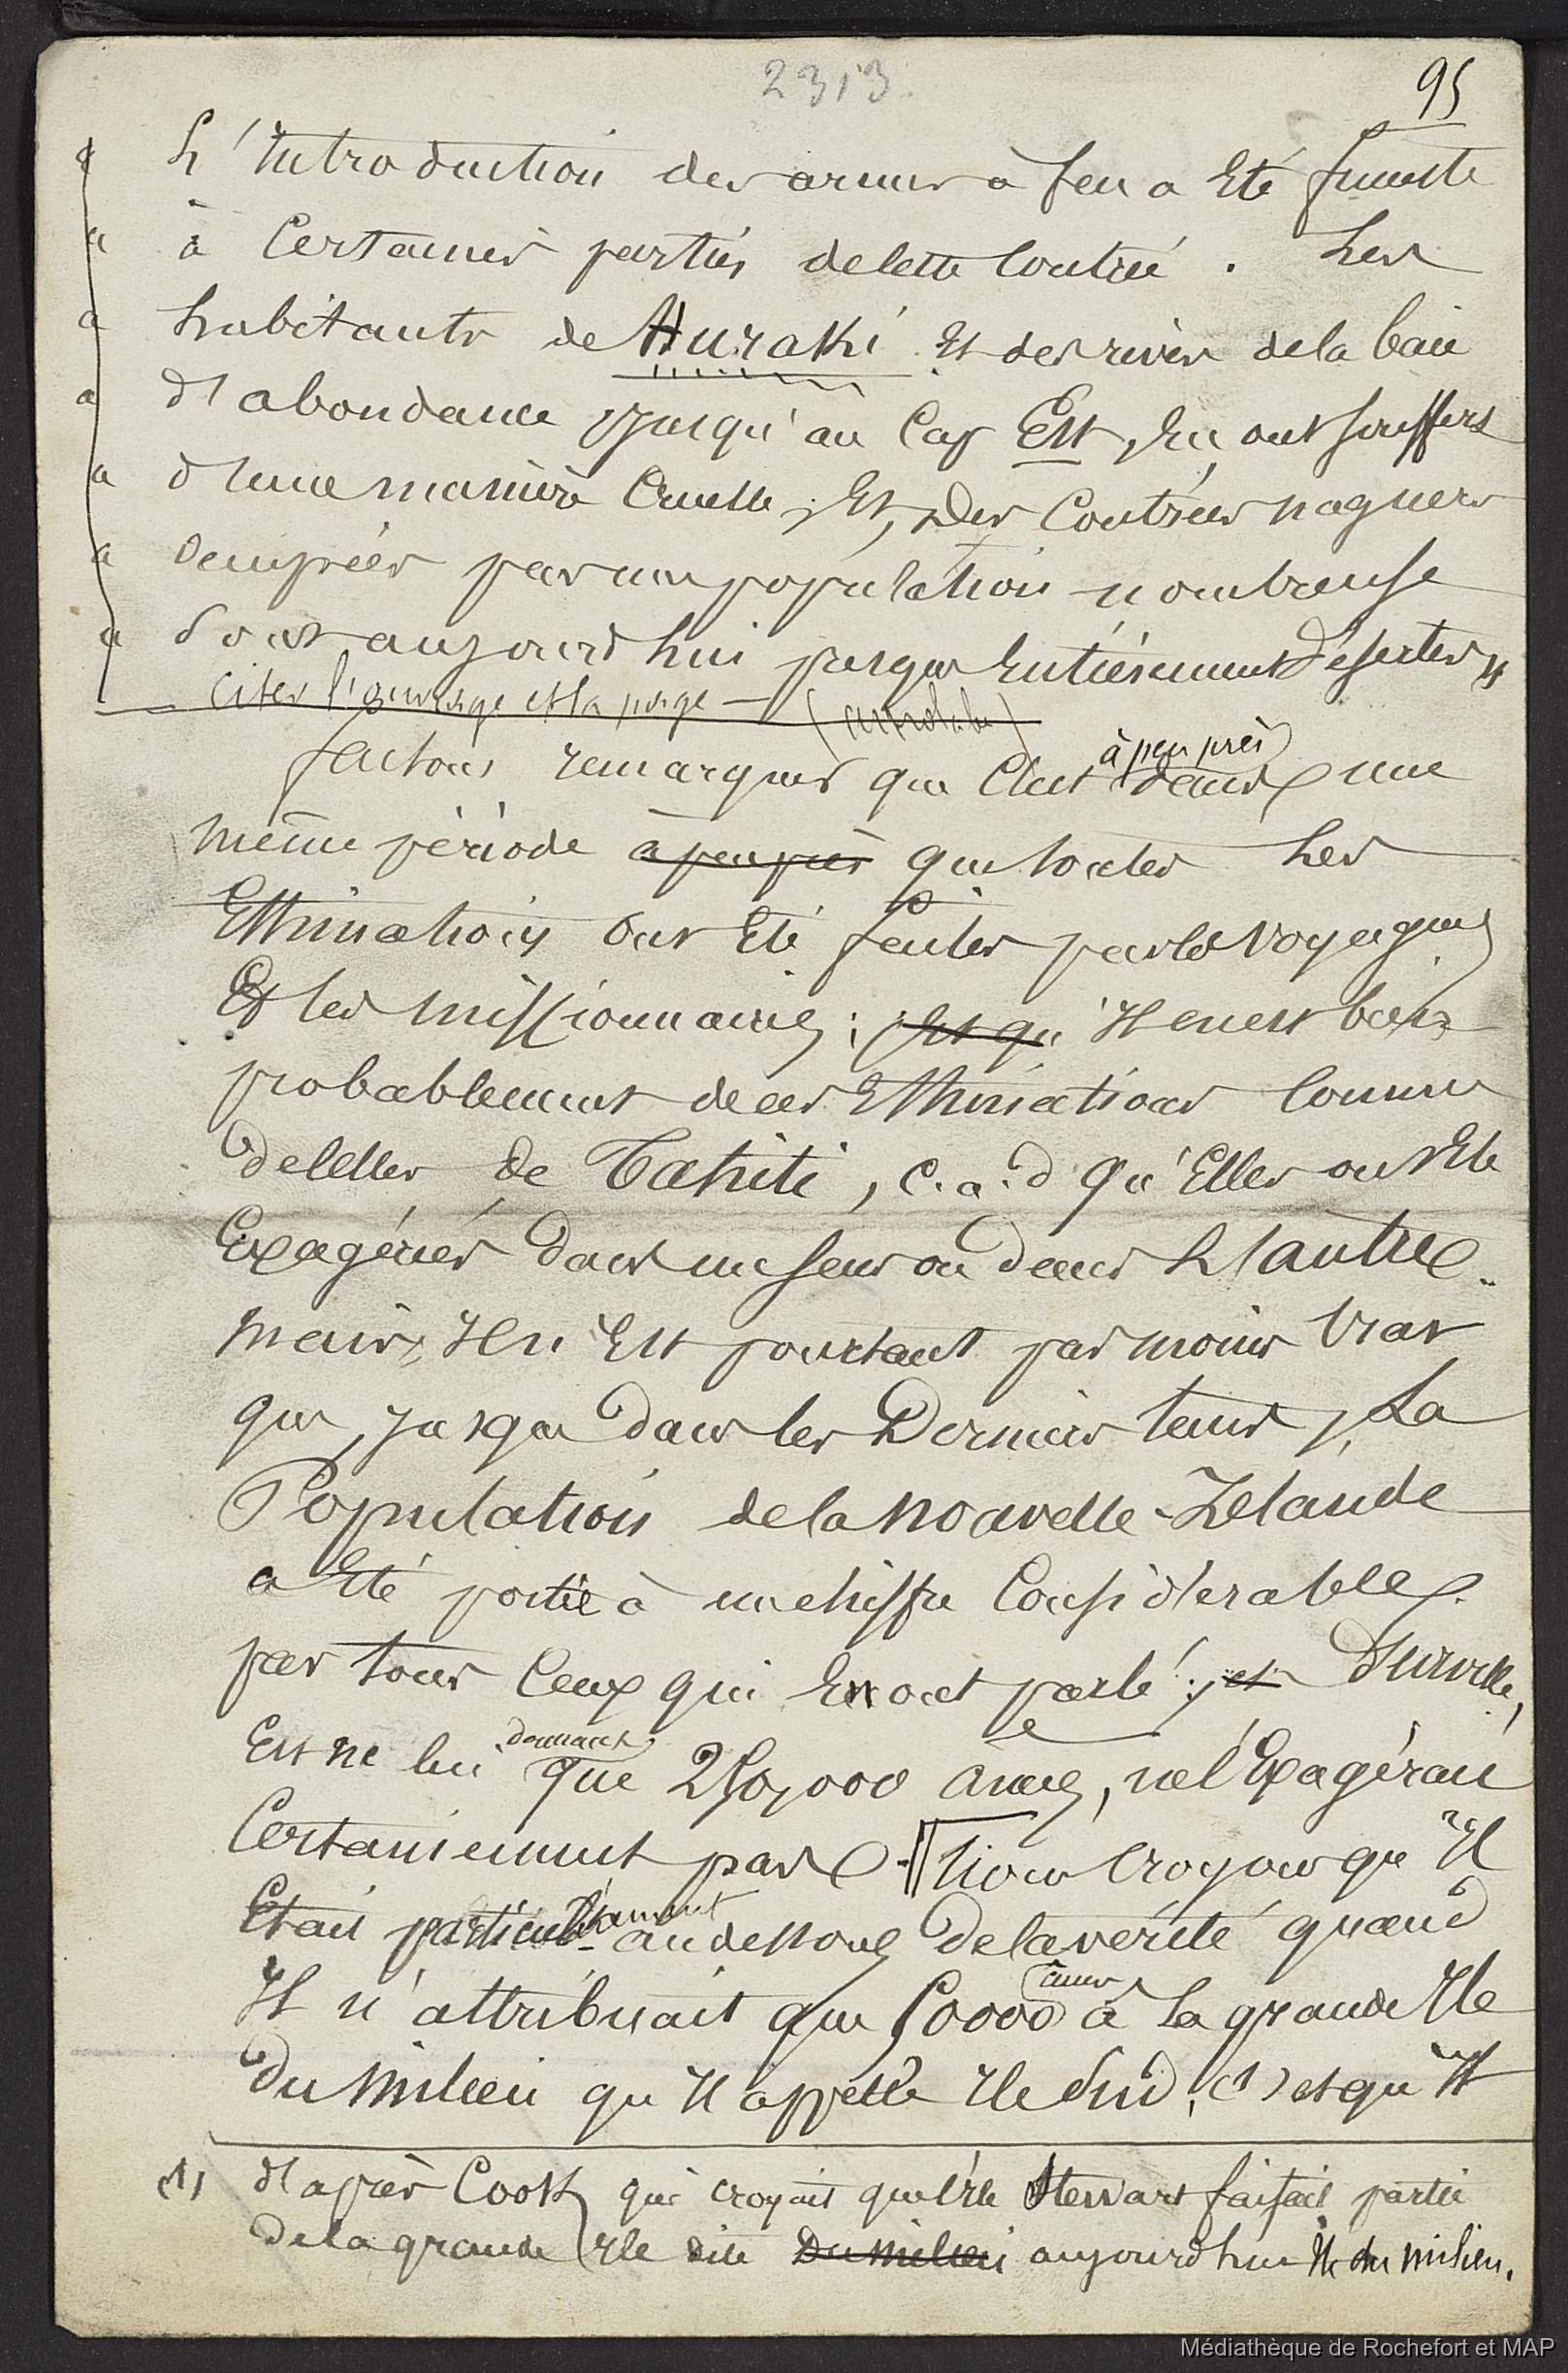 2313.
95
« L'Introduction des armes à feu a Eté funeste
« à Certaines parties de cette Contrée. Les
« habitants de Huraki Et des rives de la baie
« d'abondance jusqu'au Cap Est, En ont souffert
« d'une manière Cruelle; Et, des Contrées naguère
« occupées par une population nombreuse
« sont aujourd'hui presque Entièrement désertes »
Citer l'ouvrage et la page — (astrolabe)
faisons remarquer que C'est à peu près dans une
même période à peu près que toutes Les
Estimations ont Eté faites par les voyageurs
Et les missionnaires; Et qu'Il en est bien
probablement de ces Estimations Comme
de Celles de Tahiti, c.a.d qu'Elles ont Eté
Exagérées dans un sens ou dans L'autre.
mais, Il n'Est pourtant pas moins vrai
que, jusque dans les Derniers tems, La
Population de la Nouvelle-Zélande
a Eté portée à un chiffre Considérable
par tous Ceux qui En ont parlé; et D'Urville,
En ne lui donnant que 250,000 âmes, ne l'Exagérait
Certainement pas. Nous Croyons qu'Il
Etait particulièrement au dessous de la vérité quand
Il n'attribuait que 50000 âmes à La grande Ile
du Milieu qu'Il appelle Ile Sud, (1) et qu'Il
(1) d'après Cook qui croyait que l'île Stewart faisait partie
de la grande Ile dite Du milieu aujourd'hui Ile du Milieu.
Médiathèque de Rochefort et MAP